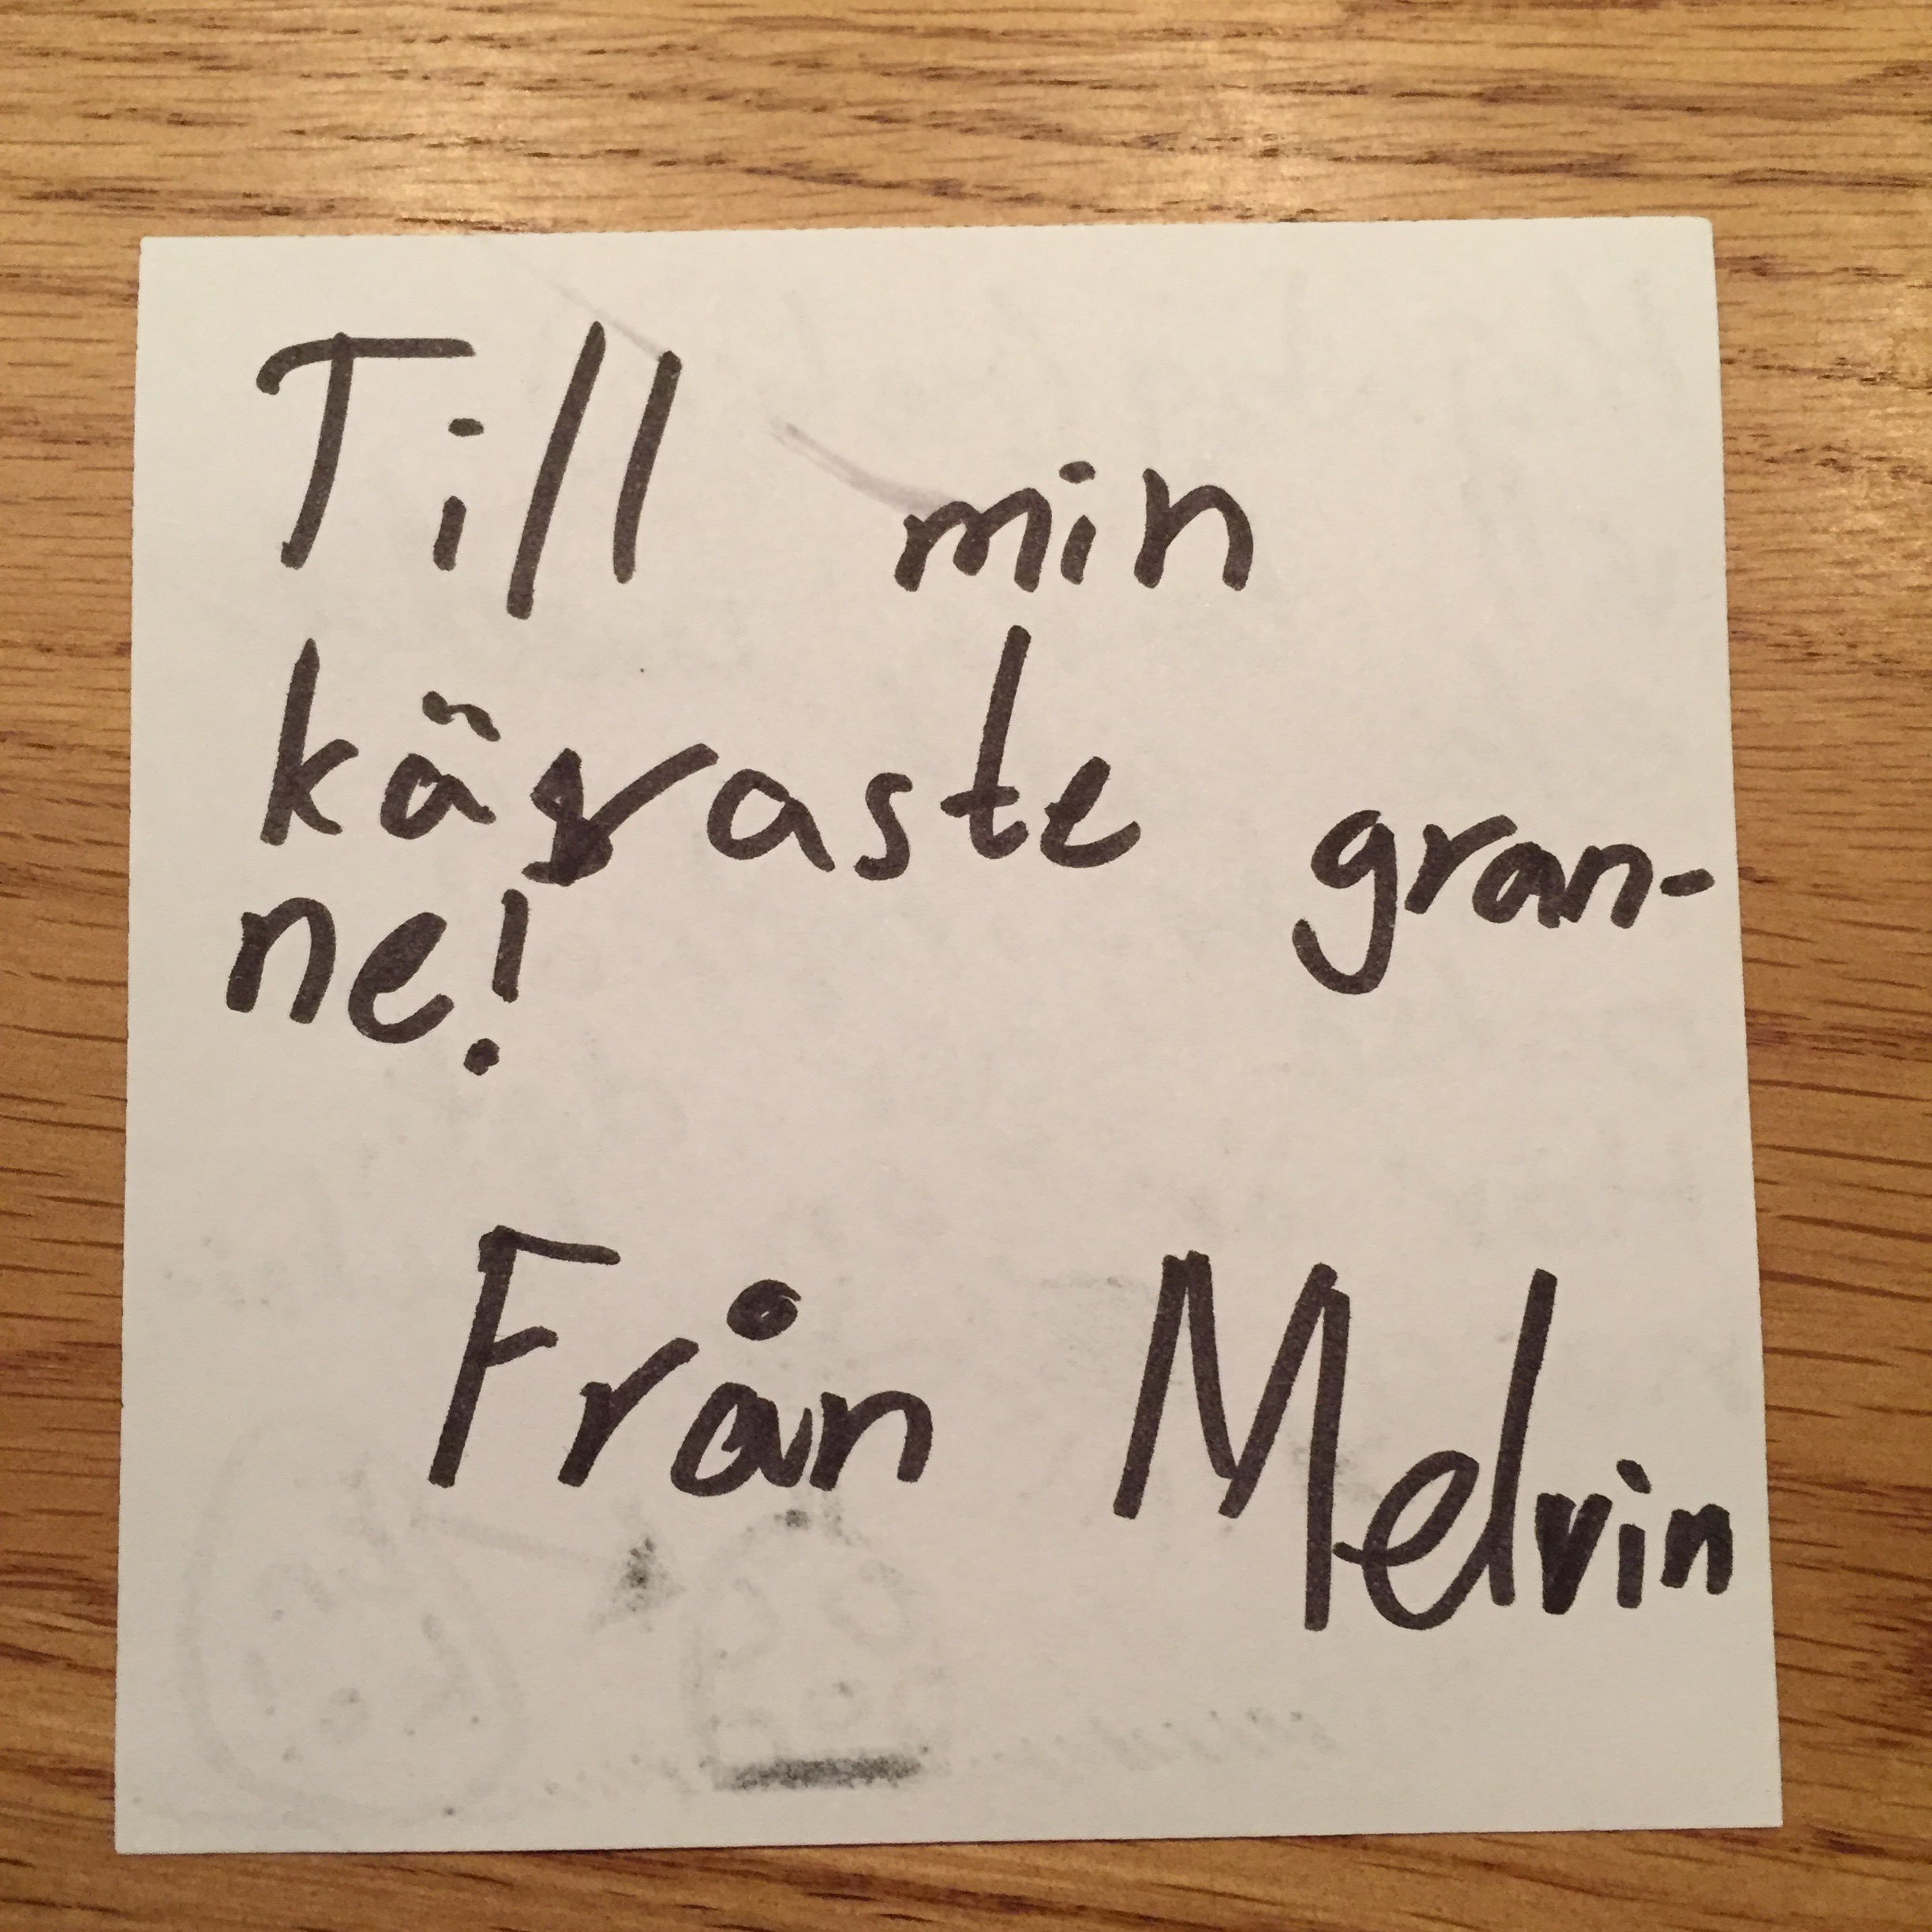 Till min
käraste gran-
ne!
Från Melvin